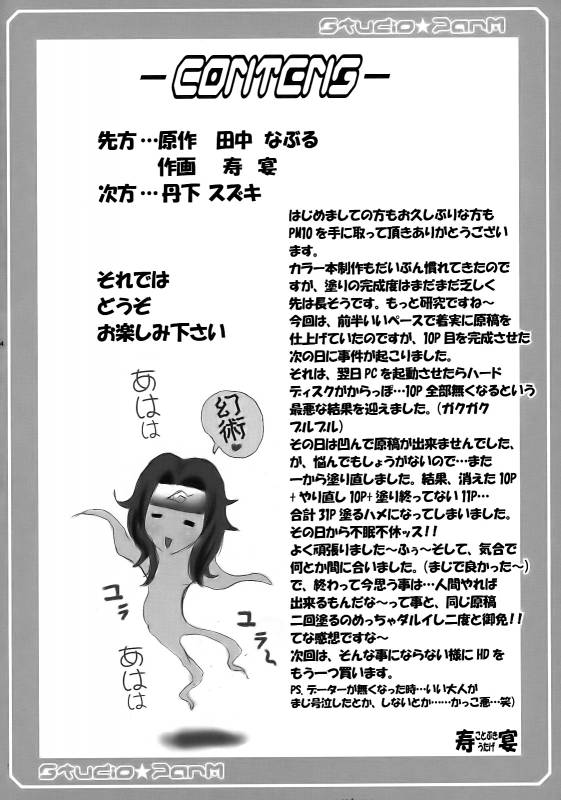 Studio★ParM
-CONTENG-
先方…原作 田中 なぶる
作画 寿 宴
次方…丹下 スズキ
それでは
どうぞ
お楽しみ下さい
はじめましての方もお久しぶりな方も
PM10を手に取って頂きありがとうござい
ます。
カラー本制作もだいぶん慣れてきたので
すが、塗りの完成度はまだまだ乏しく
先は長そうです。もっと研究ですね～
今回は、前半いいペースで着実に原稿を
仕上げていたのですが、10P目を完成させた
次の日に事件が起こりました。
それは、翌日PCを起動させたらハード
ディスクがからっぽ…10P全部無くなるという
最悪な結果を迎えました。(ガクガク
ブルブル)
その日は凹んで原稿が出来ませんでした、
が、悩んでもしょうがないので…また
一から塗り直しました。結果、消えた10P
+やり直し10P+塗り終ってない11P…
合計31P塗るハメになってしまいました。
その日から不眠不休ッス!!
よく頑張りました～ふぅ～そして、気合で
何とか間に合いました。(まじで良かった～)
で、終わって今思う事は…人間やれば
出来るもんだな～って事と、同じ原稿
二回塗るのめっちゃダルイし二度と御免!!
てな感想ですな～
次回は、そんな事にならない様にHDを
もう一つ買います。
PS.データーが無くなった時…いい大人が
まじ号泣したとか、しないとか……かっこ悪…笑)
寿 ことぶき
うたげ 宴
あはは
幻術♥
ユラ
ユラ～
あはは
Studio★ParM